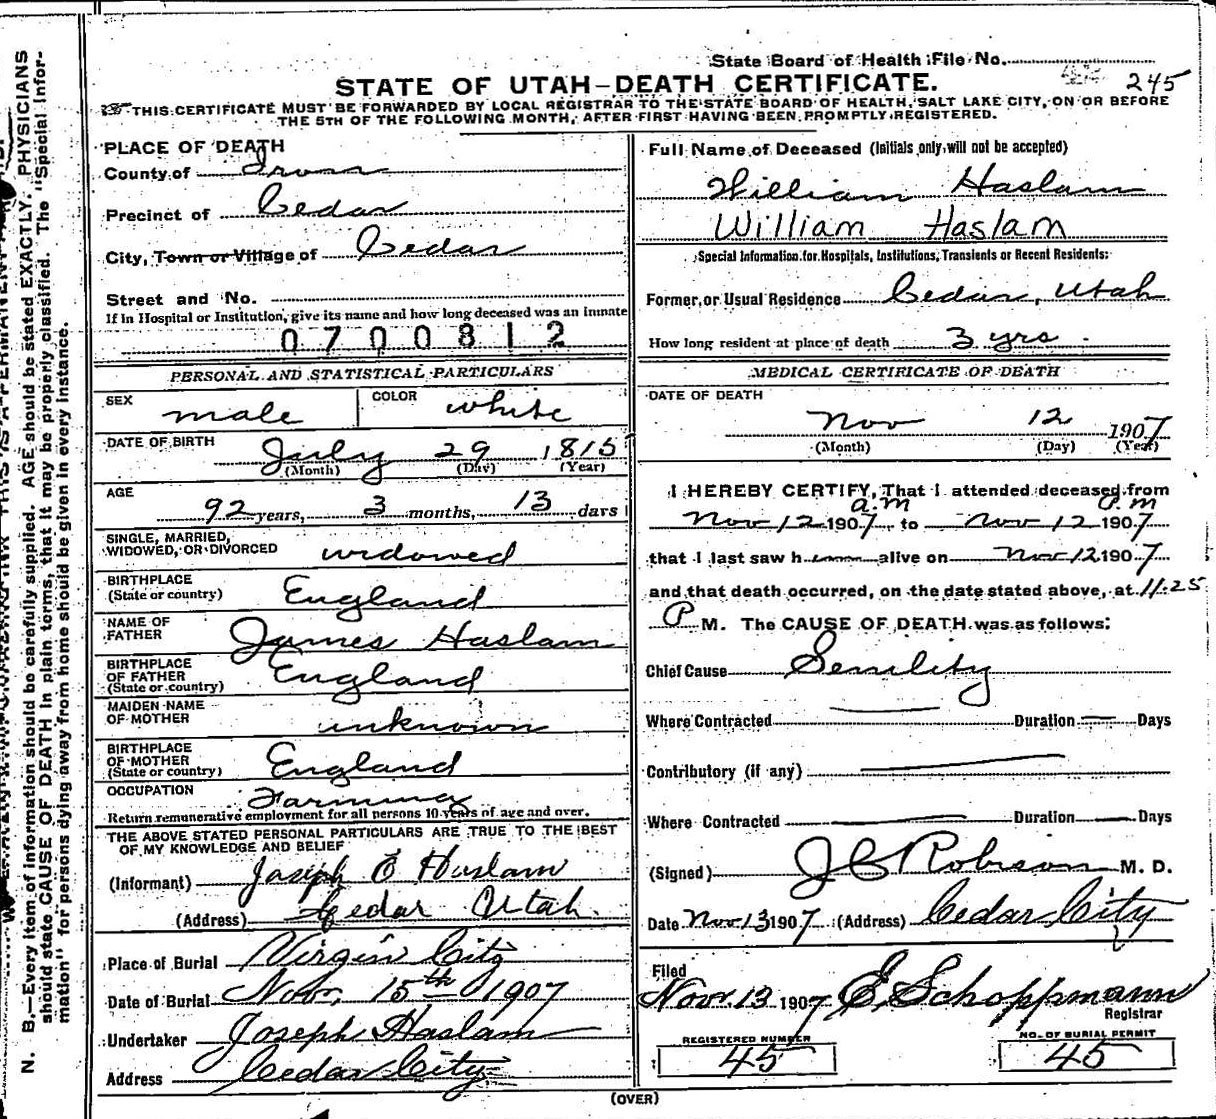 State Board of Health File No. 245
STATE OF UTAH—DEATH CERTIFICATE.
THIS CERTIFICATE MUST BE FORWARDED BY LOCAL REGISTRAR TO THE STATE BOARD OF HEALTH, SALT LAKE CITY, ON OR BEFORE
THE 5TH OF THE FOLLOWING MONTH, AFTER FIRST HAVING BEEN PROMPTLY REGISTERED.
PLACE OF DEATH
County of Iron
Precinct of Cedar
City, Town or Village of Cedar
Street and No.
If in Hospital or Institution, give its name and how long deceased was an inmate
0700812
PERSONAL AND STATISTICAL PARTICULARS
SEX male COLOR white
DATE OF BIRTH July 29 1815
(Month) (Day) (Year)
AGE 92 years, 3 months, 13 days
SINGLE, MARRIED,
WIDOWED, OR DIVORCED widowed
BIRTHPLACE
(State or country) England
NAME OF
FATHER James Haslam
BIRTHPLACE
OF FATHER
(State or country) England
MAIDEN NAME
OF MOTHER unknown
BIRTHPLACE
OF MOTHER
(State or country) England
OCCUPATION Farming
Return remunerative employment for all persons 10 years of age and over.
THE ABOVE STATED PERSONAL PARTICULARS ARE TRUE TO THE BEST
OF MY KNOWLEDGE AND BELIEF
(Informant) Joseph E Haslam
(Address) Cedar Utah.
Place of Burial Virgin City
Date of Burial Nov. 15th 1907
Undertaker Joseph Haslam
Address Cedar City
Full Name of Deceased (Initials only will not be accepted)
William Haslam
William Haslam
Special Information for Hospitals, Institutions, Transients or Recent Residents:
Former, or Usual Residence Cedar, Utah
How long resident at place of death 3 yrs.
MEDICAL CERTIFICATE OF DEATH
DATE OF DEATH
Nov 12 1907
(Month) (Day) (Year)
I HEREBY CERTIFY, That I attended deceased from
a.m P.m
Nov 12 1907 to Nov 12 1907
that I last saw him alive on Nov 12 1907
and that death occurred, on the date stated above, at 11.25
P M. The CAUSE OF DEATH was as follows:
Chief Cause Senility
Where Contracted — Duration — Days
Contributory (if any) —
Where Contracted — Duration — Days
(Signed) J C Robison M. D.
Date Nov 13 1907 (Address) Cedar City
Filed
Nov. 13 1907 E. Schoppmann
Registrar
REGISTERED NUMBER NO. OF BURIAL PERMIT
45 45
(OVER)
N. B.—Every item of information should be carefully supplied. AGE should be stated EXACTLY. PHYSICIANS
should state CAUSE OF DEATH in plain terms, that it may be properly classified. The "Special Infor-
mation" for persons dying away from home should be given in every instance.